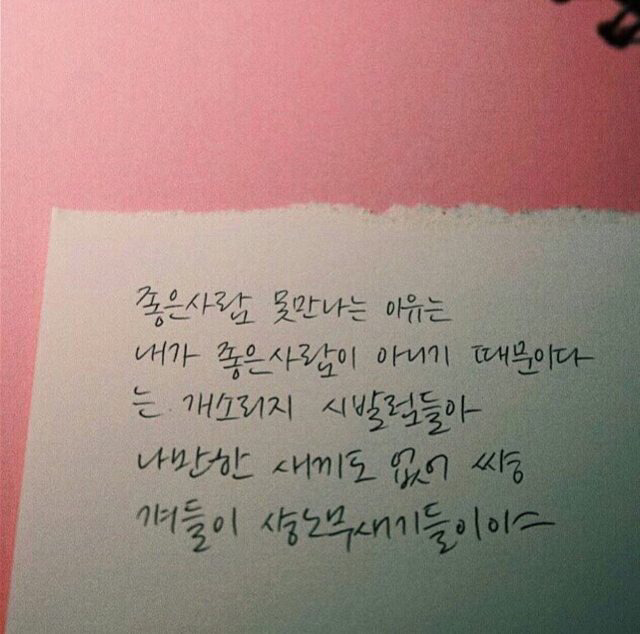 좋은사람 못만나는 이유는
내가 좋은사람이 아니기 때문이다
는 개소리지 시발럼들아
나만한 새끼도 없어 쌰앙
겨들이 상노무새기들이이스